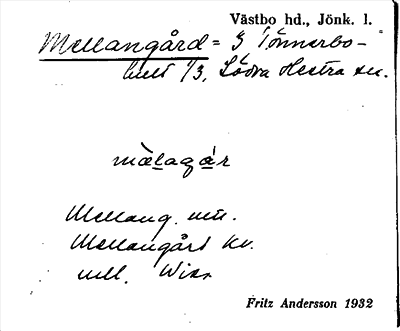 Västbo hd., Jönk. l.
Mellangård = I Tönnerbo-
hult 1/3, Södra Hestra sn.
mälagár
Mellang. 
Mellangård kv.
Fritz Andersson 1932